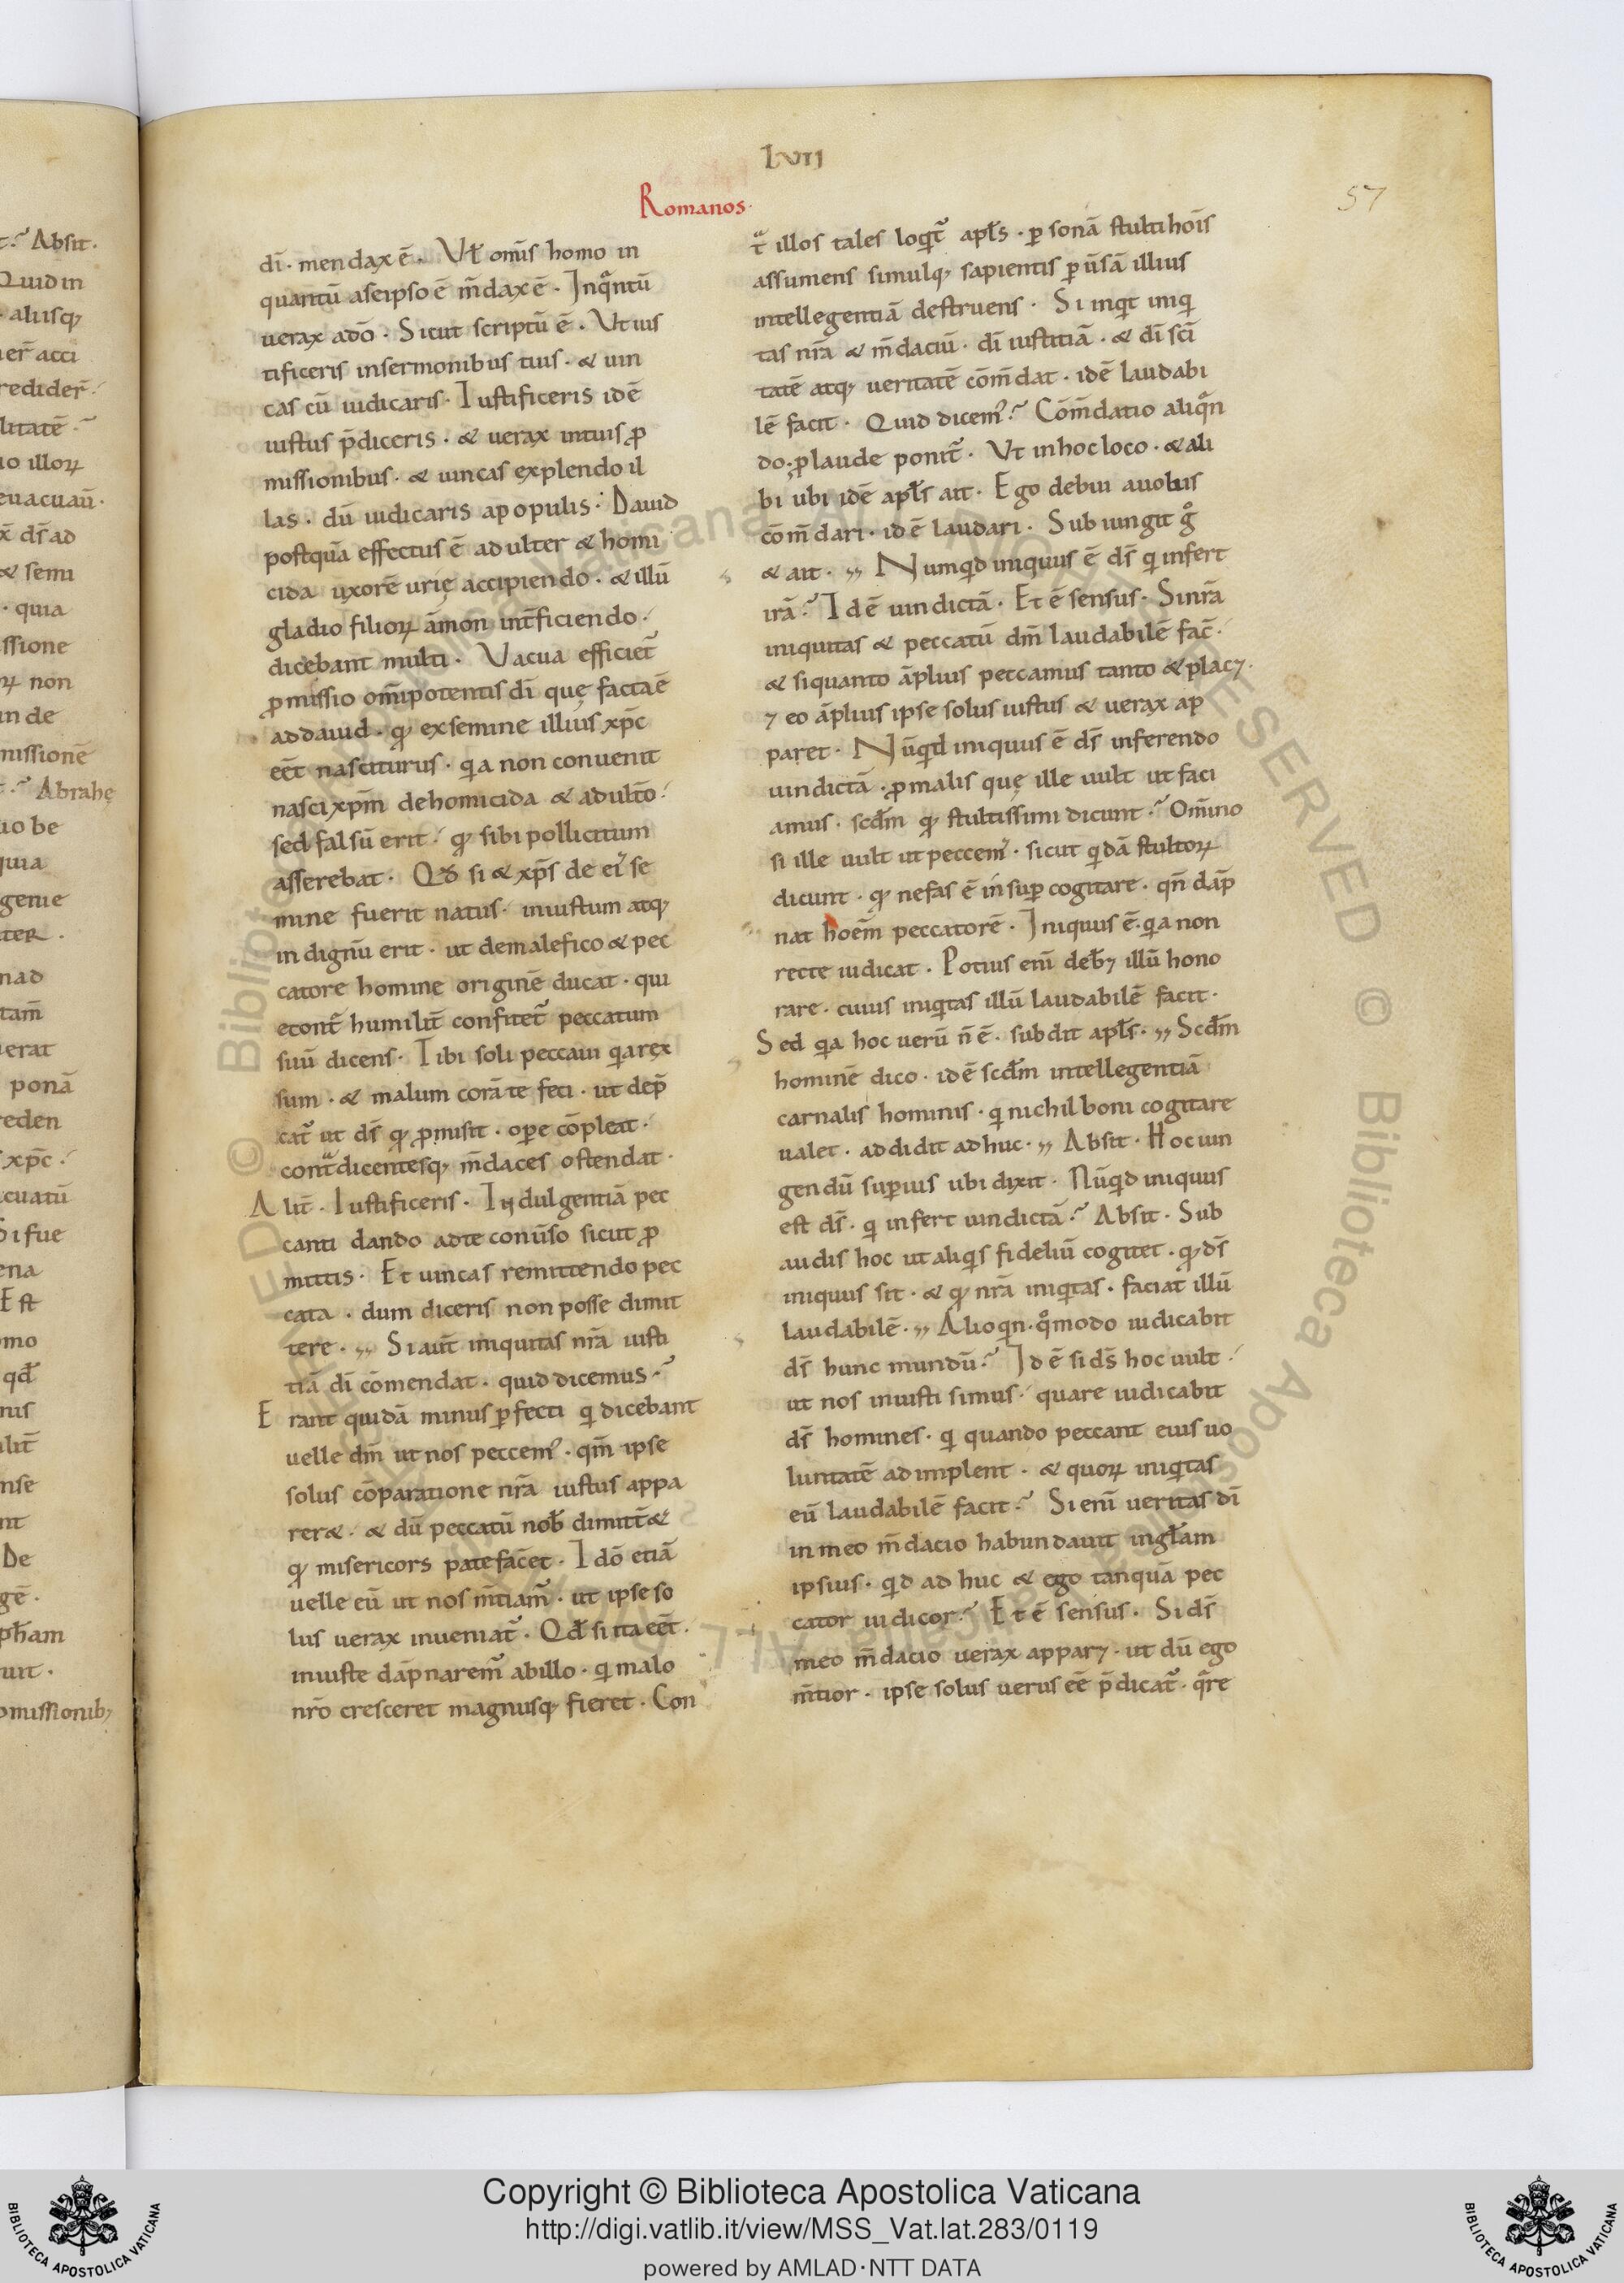 LVII
57
Romanos.
dī. mendax ē. Vł omīs homo in
quantū aseipso ē m̄dax ē. Inqͣntū
uerax adō. Sicut scriptū ē. Vt ius
tificeris insermonibus tuis. & uin
cas cū iudicaris. Iustificeris idē
iustus p̄diceris. & uerax intuis ꝓ
missionibus. & uincas explendo il
las. dū iudicaris apopulis. Dauid
postquā effectus ē adulter & homi
cida uxorē urię accipiendo. & illū
gladio filioꝝ āmon int̄ficiendo.
dicebant multi. Vacua efficiet᷑
ꝓmissio om̄ipotentis dī quę facta ē
addauid. qꝫ exsemine illius xp̄c
eēt nasciturus. qa non conuenit
nasci xp̄m dehomicida & adulto.
sed falsū erit. qꝫ sibi pollicitum
asserebat. Qđ si & xp̄s de eiꝰ se
mine fuerit natus. iniustum atqꝫ
indignū erit. ut demalefico & pec
catore homine originē ducat. qui
econtͣ humilit̄ confitet᷑ peccatum
suū dicens. Tibi soli peccaui qa rex
sum. & malum corā te feci. ut dep̄
cat᷑ ut ds̄ qꝫ ꝓmisit. ope cōpleat.
contͣdicentesqꝫ m̄daces ostendat.
Alit̄. Iustificeris. Indulgentiā pec
canti dando adte conūso sicut ꝓ
mittis. Et uincas remittendo pec
cata. dum diceris non posse dimit
tere. Si aūt iniquitas nr̄a iusti
tiā dī cōmendat. quid dicemus?
Erant quidā minus ꝑfecti qi dicebant
uelle dm̄ ut nos peccemꝰ. qm̄ ipse
solus cōparatione nr̄a iustus appa
rer&. & dū peccatū nob̄ dimitt̄&
qꝫ misericors patefac̄et. Idō etiā
uelle eū ut nos m̄tiam᷑. ut ipse so
lus uerax inueniat᷑. Qđ si ita eēt.
iniuste dāpnarem᷑ abillo. qi malo
nr̄o cresceret magnusqꝫ fieret. Con
tͣ illos tales loqit᷑ apl̄s. ꝑsonā stulti hoīs
assumens simulqꝫ sapientis ꝑūsā illius
intellegentiā destruens. Si inqit iniqi
tas nr̄a & m̄daciū. dī iustitiā. & dī sc̄i
tatē atqꝫ ueritatē cōm̄dat. idē laudabi
lē facit. Quid dicemꝰ? Cōm̄datio aliqͣn
do ꝓlaude ponit᷑. Vt inhoc loco. & ali
bi ubi idē apl̄s ait. Ego debui auobis
cōm̄dari. idē laudari. Subiungit gͦ
& ait. Numqid iniquus ē ds̄ qi infert
irā? Idē uindictā. Et ē sensus. Si nr̄a
iniquitas & peccatū dm̄ laudabilē fac̄.
& siquanto āplius peccamus tanto & placꝫ
⁊ eo āplius ipse solus iustus & uerax ap
paret. Nūqid iniquus ē ds̄ inferendo
uindictā. ꝓmalis quę ille uult ut faci
amus. scd̄m qꝫ stultissimi dicunt? Om̄ino
si ille uult ut peccemꝰ. sicut qidā stultoꝝ
dicunt. qꝫ nefas ē insuꝑ cogitare. qn̄ dāp
nat hoēm peccatorē. Iniquus ē. qa non
recte iudicat. Potius eni̅ deb̄ꝫ illū hono
rare. cuius iniqitas illū laudabilē facit.
Sed qa hoc uerū n̄ ē. subdit apl̄s. Scd̄m
hominē dico. idē scd̄m intellegentiā
carnalis hominis. qi nichil boni cogitare
ualet. addidit adhuc. Absit. Hoc uin
gendū suꝑius ubi dixit. Nūqid iniquus
est ds̄. qi infert uindictā? Absit. Sub
audis hoc ut aliqis fideliū cogitet. qꝫ ds̄
iniquus sit. & qꝫ nr̄a iniqitas. faciat illū
laudabilē. Alioqin. qͦmodo iudicabit
ds̄ hunc mundū? Idē si ds̄ hoc uult.
ut nos iniusti simus. quare iudicabit
ds̄ homines. qi quando peccant eius uo
luntatē adimplent. & quoꝝ iniqitas
eū laudabilē facit? Si eni̅ ueritas dī
in meo m̄dacio habundauit inglam̄
ipsius. qid adhuc & ego tanquā pec
cator iudicor? Et ē sensus. Si ds̄
meo m̄dacio uerax apparꝫ. ut dū ego
m̄tior. ipse solus uerus eē p̄dicat᷑. qͣre
Copyright © Biblioteca Apostolica Vaticana
http://digi.vatlib.it/view/MSS_Vat.lat.283/0119
powered by AMLAD·NTT DATA
BIBLIOTECA APOSTOLICA VATICANA
BIBLIOTECA APOSTOLICA VATICANA